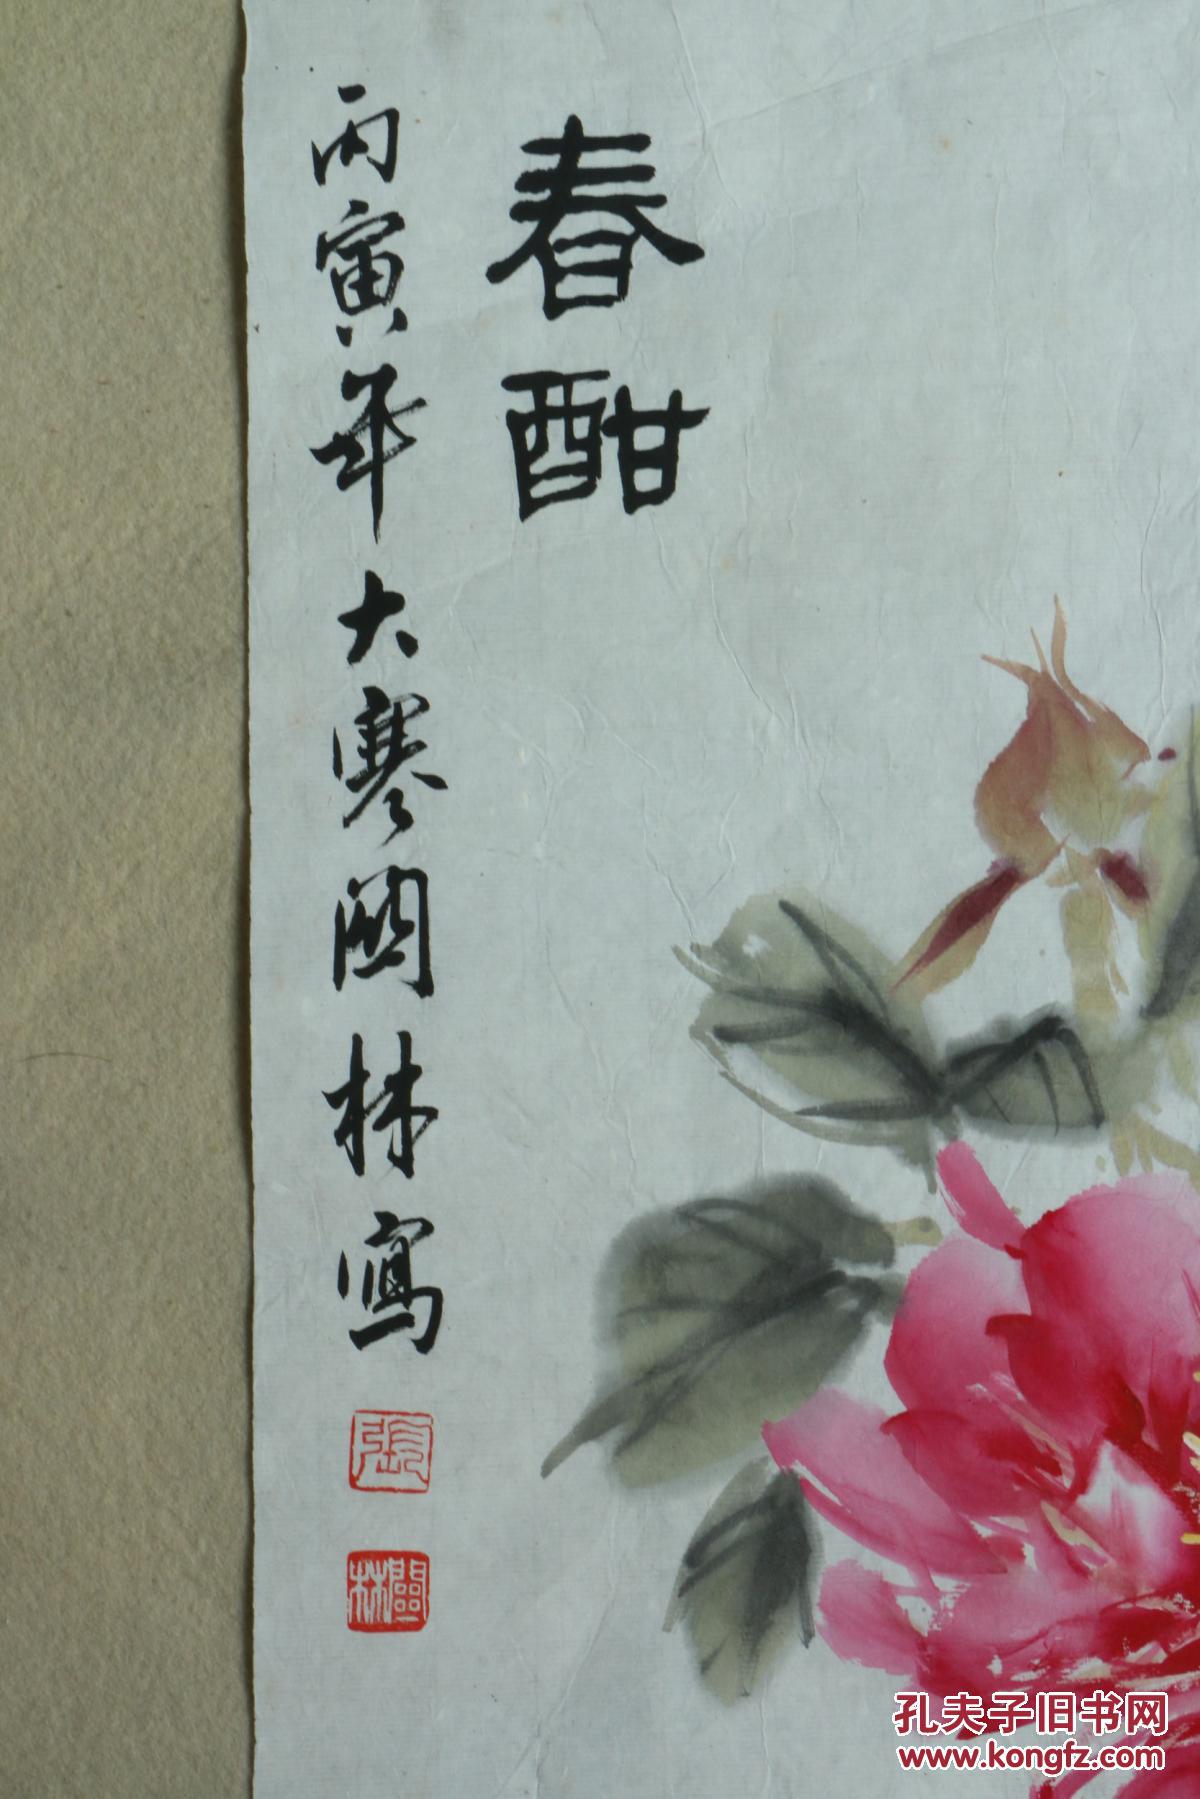 春酣
丙寅年大寒關林寫
張
關林
孔夫子旧书网
www.kongfz.com